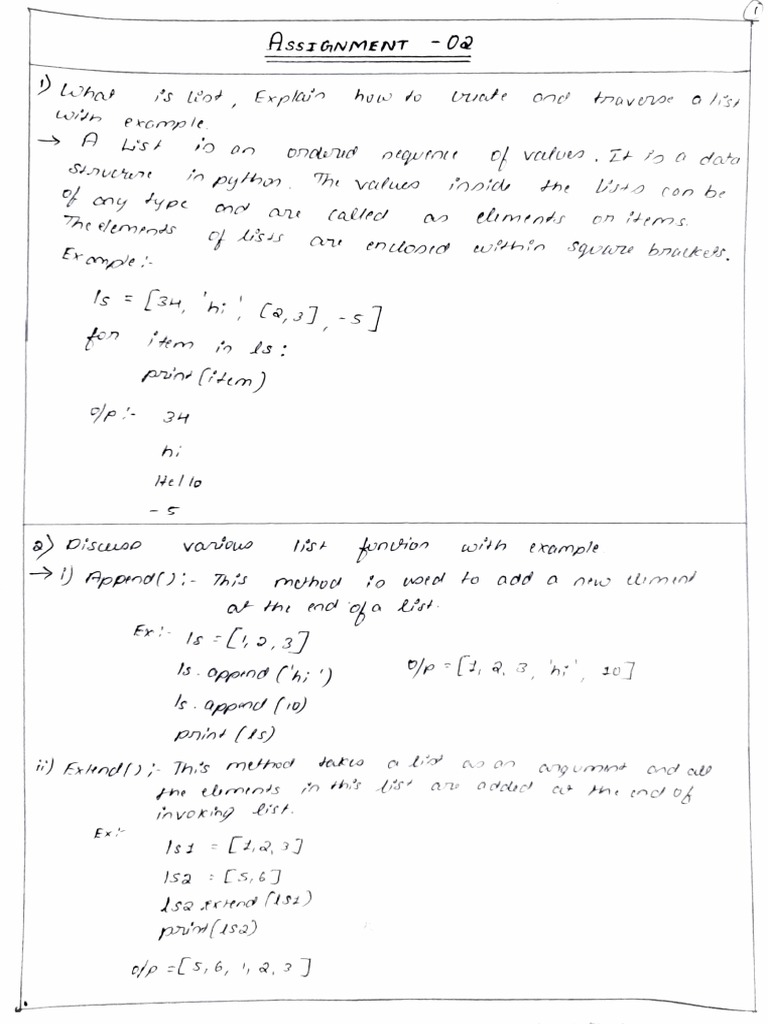 1
ASSIGNMENT - 02
1) What is list, Explain how to create and traverse a list
with example.
→ A List is an ordered sequence of values. It is a data
structure in python. The values inside the lists can be
of any type and are called as elements or items.
The elements of lists are enclosed within square brackets.
Example:-
ls = [34, 'hi', [2,3], -5]
for item in ls:
print(item)
o/p:- 34
hi
Hello
-5
2) Discuss various list function with example
→ i) Append():- This method is used to add a new element
at the end of a list.
Ex:- ls = [1, 2, 3]
ls.append('hi')
o/p = [1, 2, 3, 'hi', 10]
ls.append(10)
print(ls)
ii) Extend():- This method takes a list as an argument and all
the elements in this list are added at the end of
invoking list.
Ex:-
ls1 = [1,2,3]
ls2 = [5,6]
ls2.extend(ls1)
print(ls2)
o/p = [5, 6, 1, 2, 3]